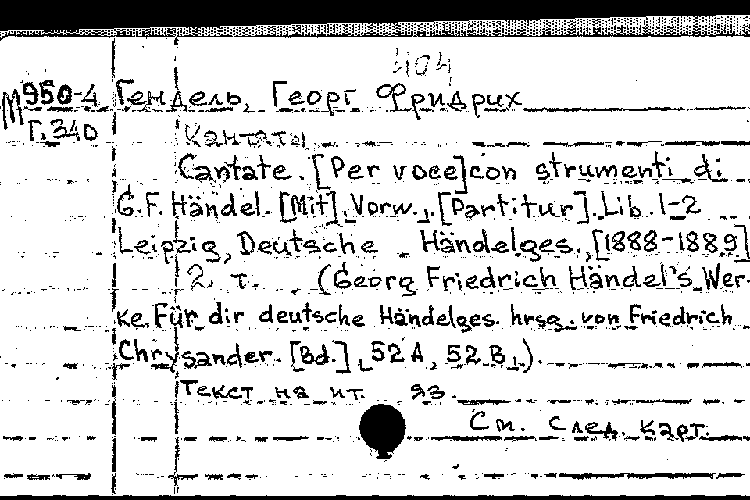 404
М950-4 Гендель, Георг Фридрих
Г.340 Кантаты
Cantate. [Per voce] con strumenti di
G.F. Händel. [Mit] Vorw., [Partitur]. Lib. 1-2
Leipzig, Deutsche Händelges., [1888-1889]
2 т. (Georg Friedrich Händel's Wer-
ke. Für dir deutsche Händelges. hrsg. von Friedrich
Chrysander. [Bd.] 52 A, 52 B).
Текст на ит. яз.
См. след. карт.